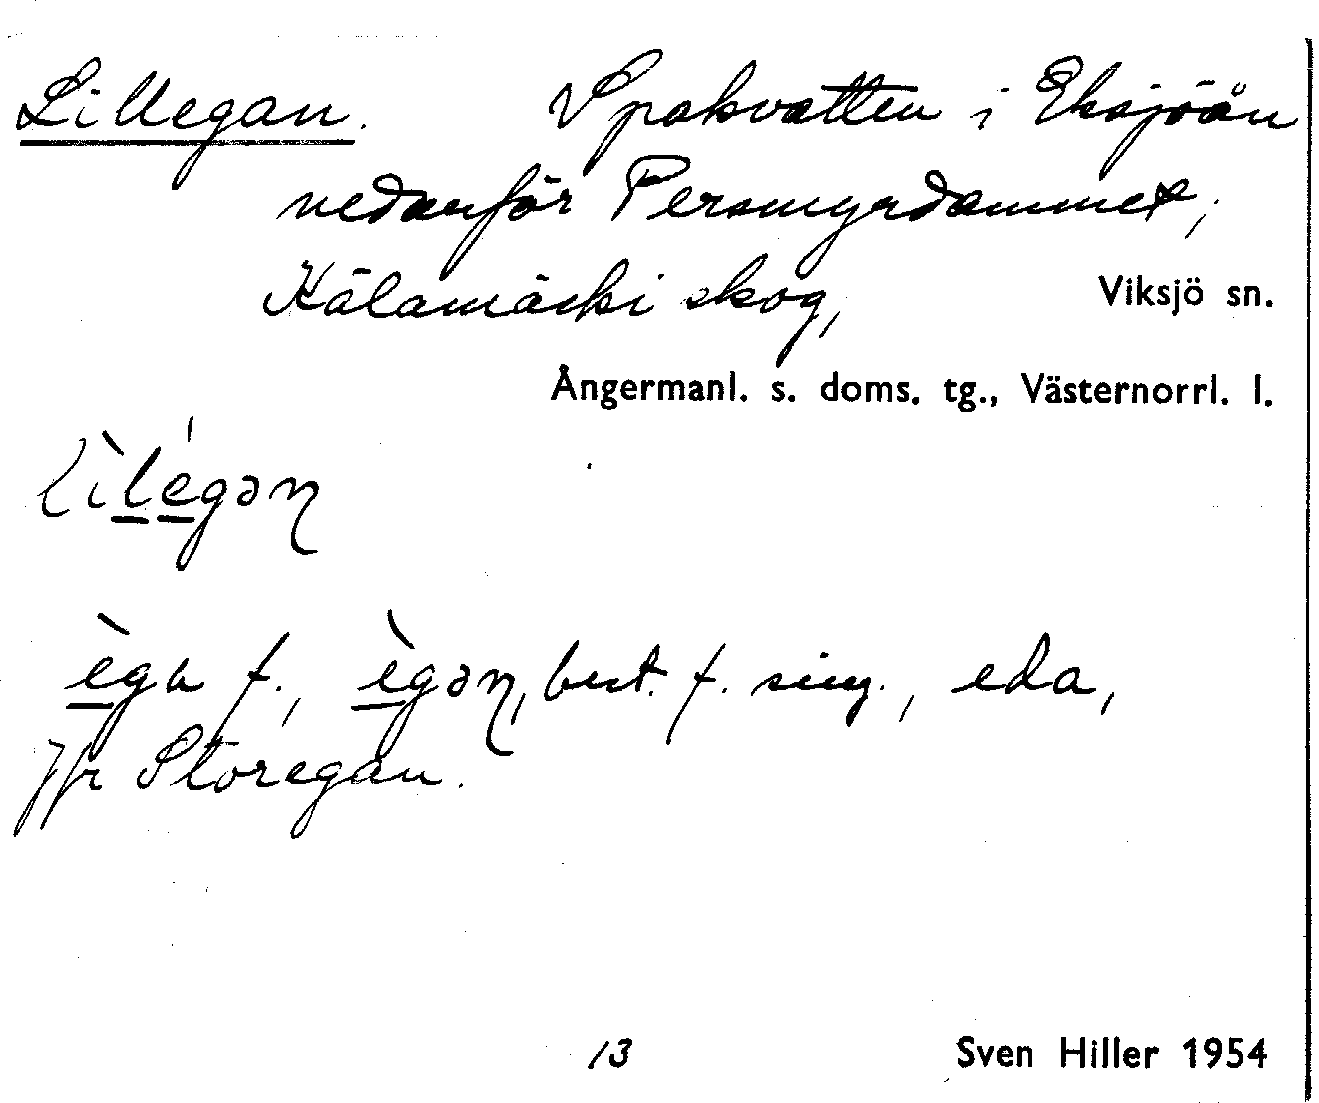 Lillegan. Spakvatten i Eksjöån
nedanför Persmyrdammet,
Kälamärki skog, Viksjö sn.
Ångermanl. s. doms. tg., Västernorrl. l.
f., best. f. sing., eda,
jfr Storegan.
13 Sven Hiller 1954